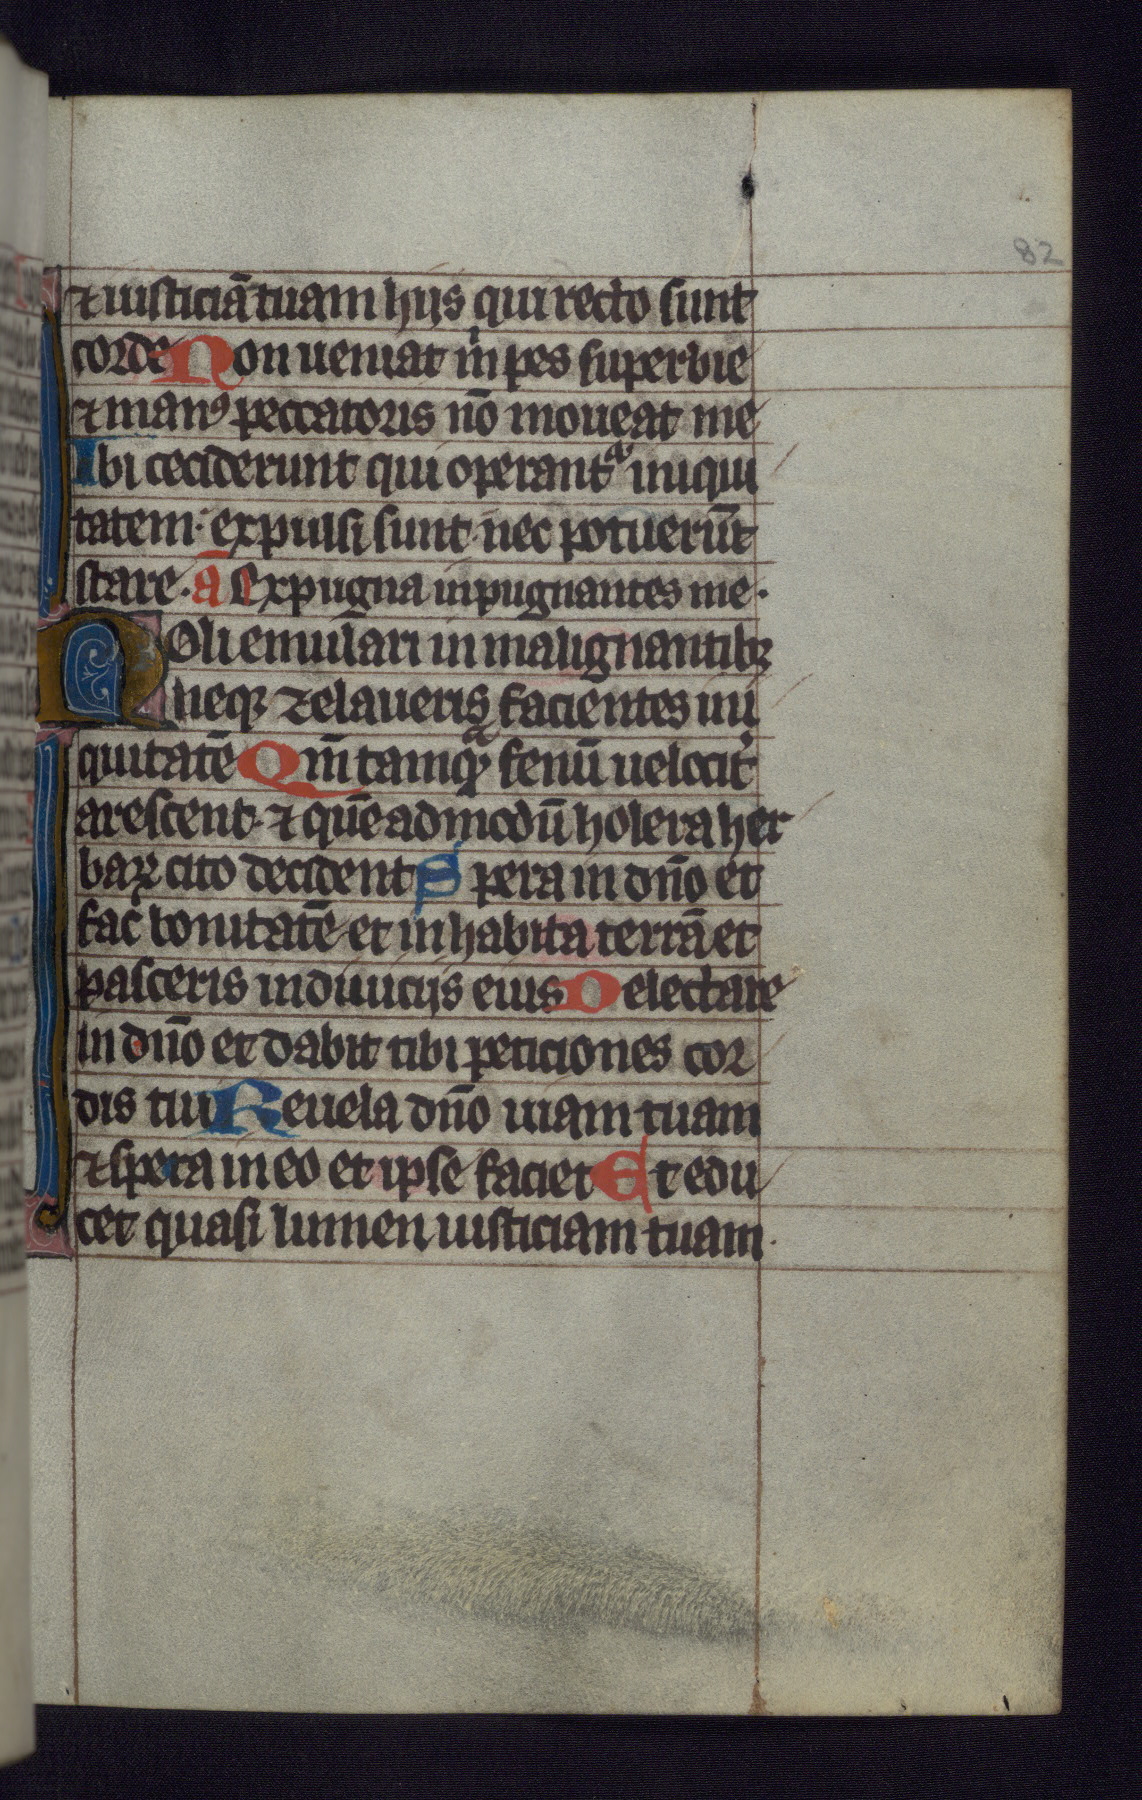 82
⁊ iusticiā tuam hijs qui recto sunt
corde Non ueniat m̍ pes superbie
⁊ manꝰ peccatoris nō moueat me
Ibi ceciderunt qui operantᷣ iniqui
tatem· expulsi sunt· nec potuerūt
stare· ā Expugna inpugnantes me·
Noli emulari in malignantibꝫ
neqꝫ zelaueris facientes ini
quitatē Qm̄ tamqᷓ fenū uelocit̍
arescent· ⁊ quēadmodū holera her
baꝝ cito decident Spera in dn̄o et
fac bonitatē et inhabita terrā et
pasceris in diuicijs eius Delectare
in dn̄o et dabit tibi peticiones cor
dis tui Reuela dn̄o uiam tuam
⁊ spera in eo et ipse faciet Et edu
cet quasi lumen iusticiam tuam·